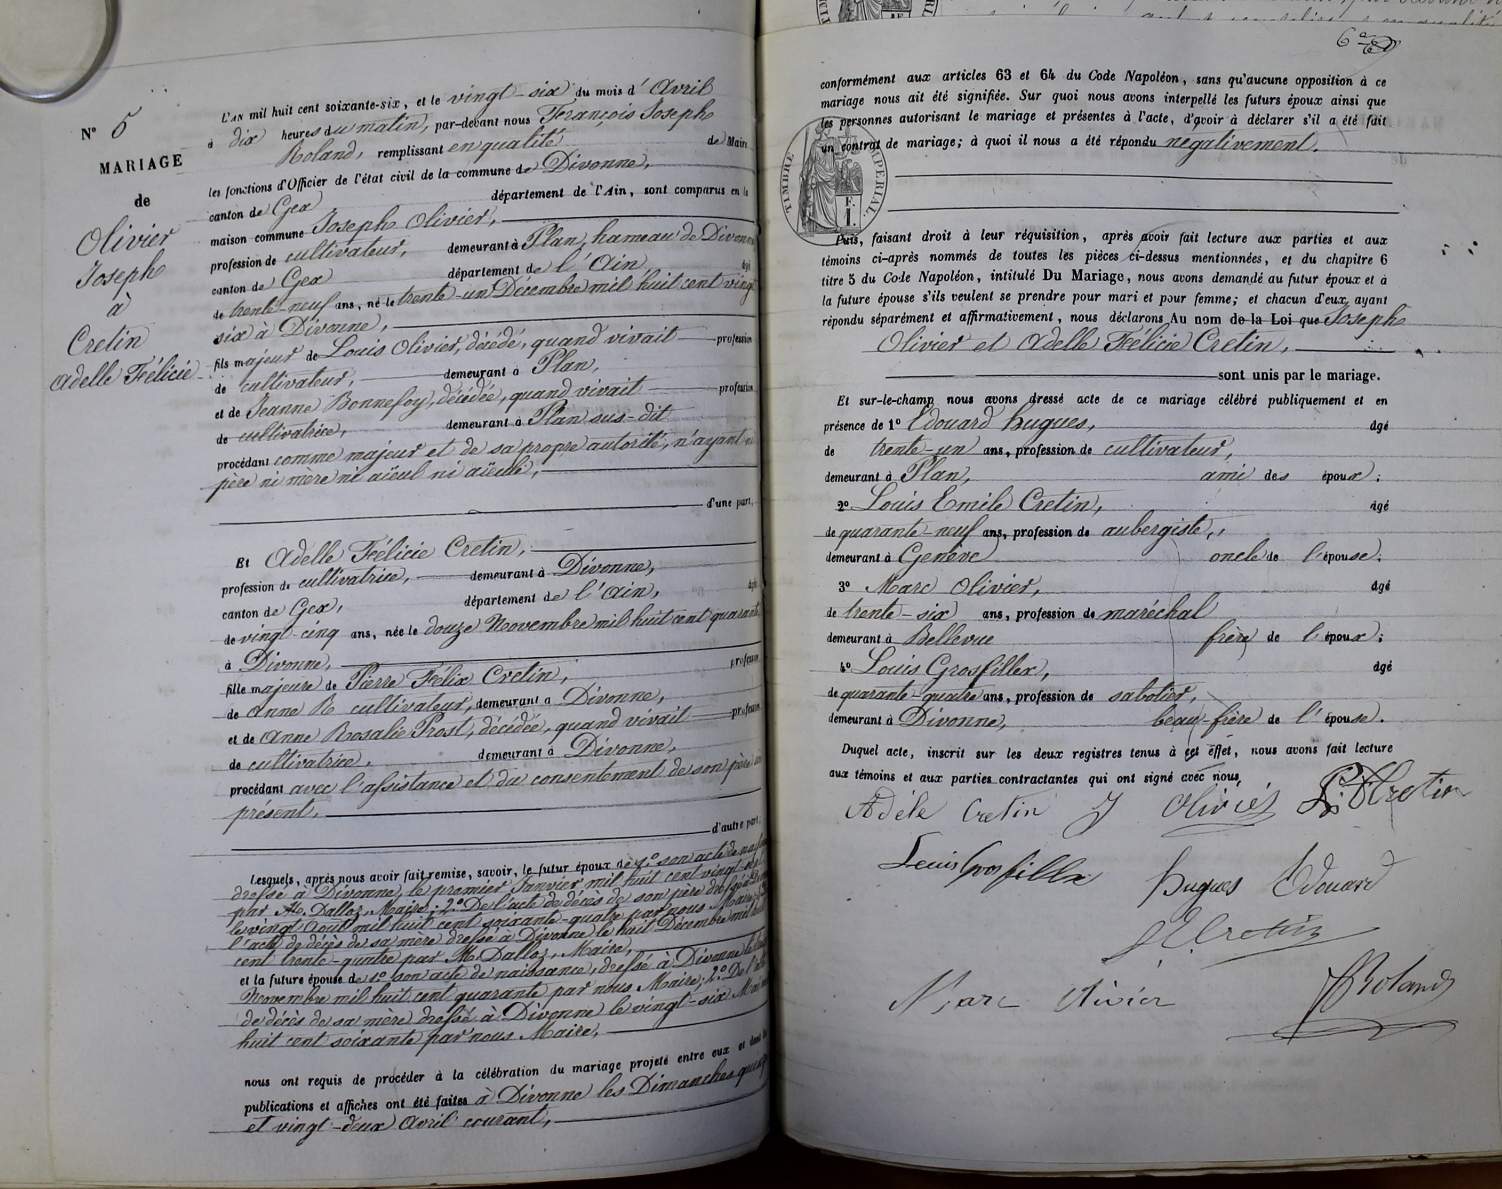 N° 5
MARIAGE
de
Olivier
Joseph
à
Cretin
Adelle Félicie
L'AN mil huit cent soixante-six, et le vingt-six du mois d'Avril
à dix heures du matin, par-devant nous François Joseph
Roland, remplissant en qualité de Maire
les fonctions d'Officier de l'état civil de la commune de Divonne,
canton de Gex département de l'Ain, sont comparus en la
maison commune Joseph Olivier,
profession de cultivateur, demeurant à Plan, hameau de Divonne
canton de Gex département de l'Ain âgé
de trente-neuf ans, né le trente-un Décembre mil huit cent vingt
six à Divonne,
fils majeur de Louis Olivier, décédé, quand vivait profession
de cultivateur, demeurant à Plan,
et de Jeanne Bonnefoy, décédée, quand vivait profession
de cultivatrice, demeurant à Plan sus-dit
procédant comme majeur et de sa propre autorité, n'ayant ni
père ni mère ni aïeul ni aïeule,
d'une part,
Et Adelle Félicie Cretin,
profession de cultivatrice, demeurant à Divonne,
canton de Gex, département de l'Ain, âgée
de vingt-cinq ans, née le douze Novembre mil huit cent quarante
à Divonne,
fille majeure de Pierre Félix Cretin, profession
de Anne R cultivateur, demeurant à Divonne,
et de Anne Rosalie Prost, décédée, quand vivait profession
de cultivatrice, demeurant à Divonne,
procédant avec l'assistance et du consentement de son père ici
présent.
d'autre part.
Lesquels, après nous avoir fait remise, savoir, le futur époux de 1° son acte de
dressé à Divonne, le premier Janvier mil huit cent vingt-sept
par M. Dalloz, Maire; 2° De l'acte de décès de son père dressé à
le vingt Août mil huit cent soixante-quatre par nous Maire;
l'acte de décès de sa mère dressé à Divonne le huit Décembre mil huit
cent trente-quatre par M. Dalloz, Maire,
et la future épouse de 1° son acte de naissance, dressé à Divonne le
Novembre mil huit cent quarante par nous Maire; 2° De l'acte
de décès de sa mère dressé à Divonne le vingt-six Mai mil
huit cent soixante par nous Maire,
nous ont requis de procéder à la célébration du mariage projeté entre eux et dont les
publications et affiches ont été faites à Divonne les Dimanches quinze
et vingt-deux Avril courant,
6e
conformément aux articles 63 et 64 du Code Napoléon, sans qu'aucune opposition à ce
mariage nous ait été signifiée. Sur quoi nous avons interpellé les futurs époux ainsi que
les personnes autorisant le mariage et présentes à l'acte, d'avoir à déclarer s'il a été fait
un contrat de mariage; à quoi il nous a été répondu négativement.
TIMBRE IMPÉRIAL
F.
1.
Puis, faisant droit à leur réquisition, après avoir fait lecture aux parties et aux
témoins ci-après nommés de toutes les pièces ci-dessus mentionnées, et du chapitre 6
titre 5 du Code Napoléon, intitulé Du Mariage, nous avons demandé au futur époux et à
la future épouse s'ils veulent se prendre pour mari et pour femme; et chacun d'eux, ayant
répondu séparément et affirmativement, nous déclarons Au nom de la Loi que Joseph
Olivier et Adelle Félicie Cretin,
sont unis par le mariage.
Et sur-le-champ nous avons dressé acte de ce mariage célébré publiquement et en
présence de 1° Edouard hugues, âgé
de trente-un ans, profession de cultivateur,
demeurant à Plan, ami des époux;
2° Louis Emile Cretin, âgé
de quarante-neuf ans, profession de aubergiste,
demeurant à Genève oncle de l'épouse;
3° Marc Olivier, âgé
de trente-six ans, profession de maréchal
demeurant à Bellevue frère de l'époux;
4° Louis Grosfillex, âgé
de quarante-quatre ans, profession de sabotier,
demeurant à Divonne, beau-frère de l'épouse.
Duquel acte, inscrit sur les deux registres tenus à cet effet, nous avons fait lecture
aux témoins et aux parties contractantes qui ont signé avec nous,
Adèle Cretin J Olivier P. F. Cretin
Louis Grosfillex Hugues Edouard
L Cretin
Marc Olivier FJ Roland